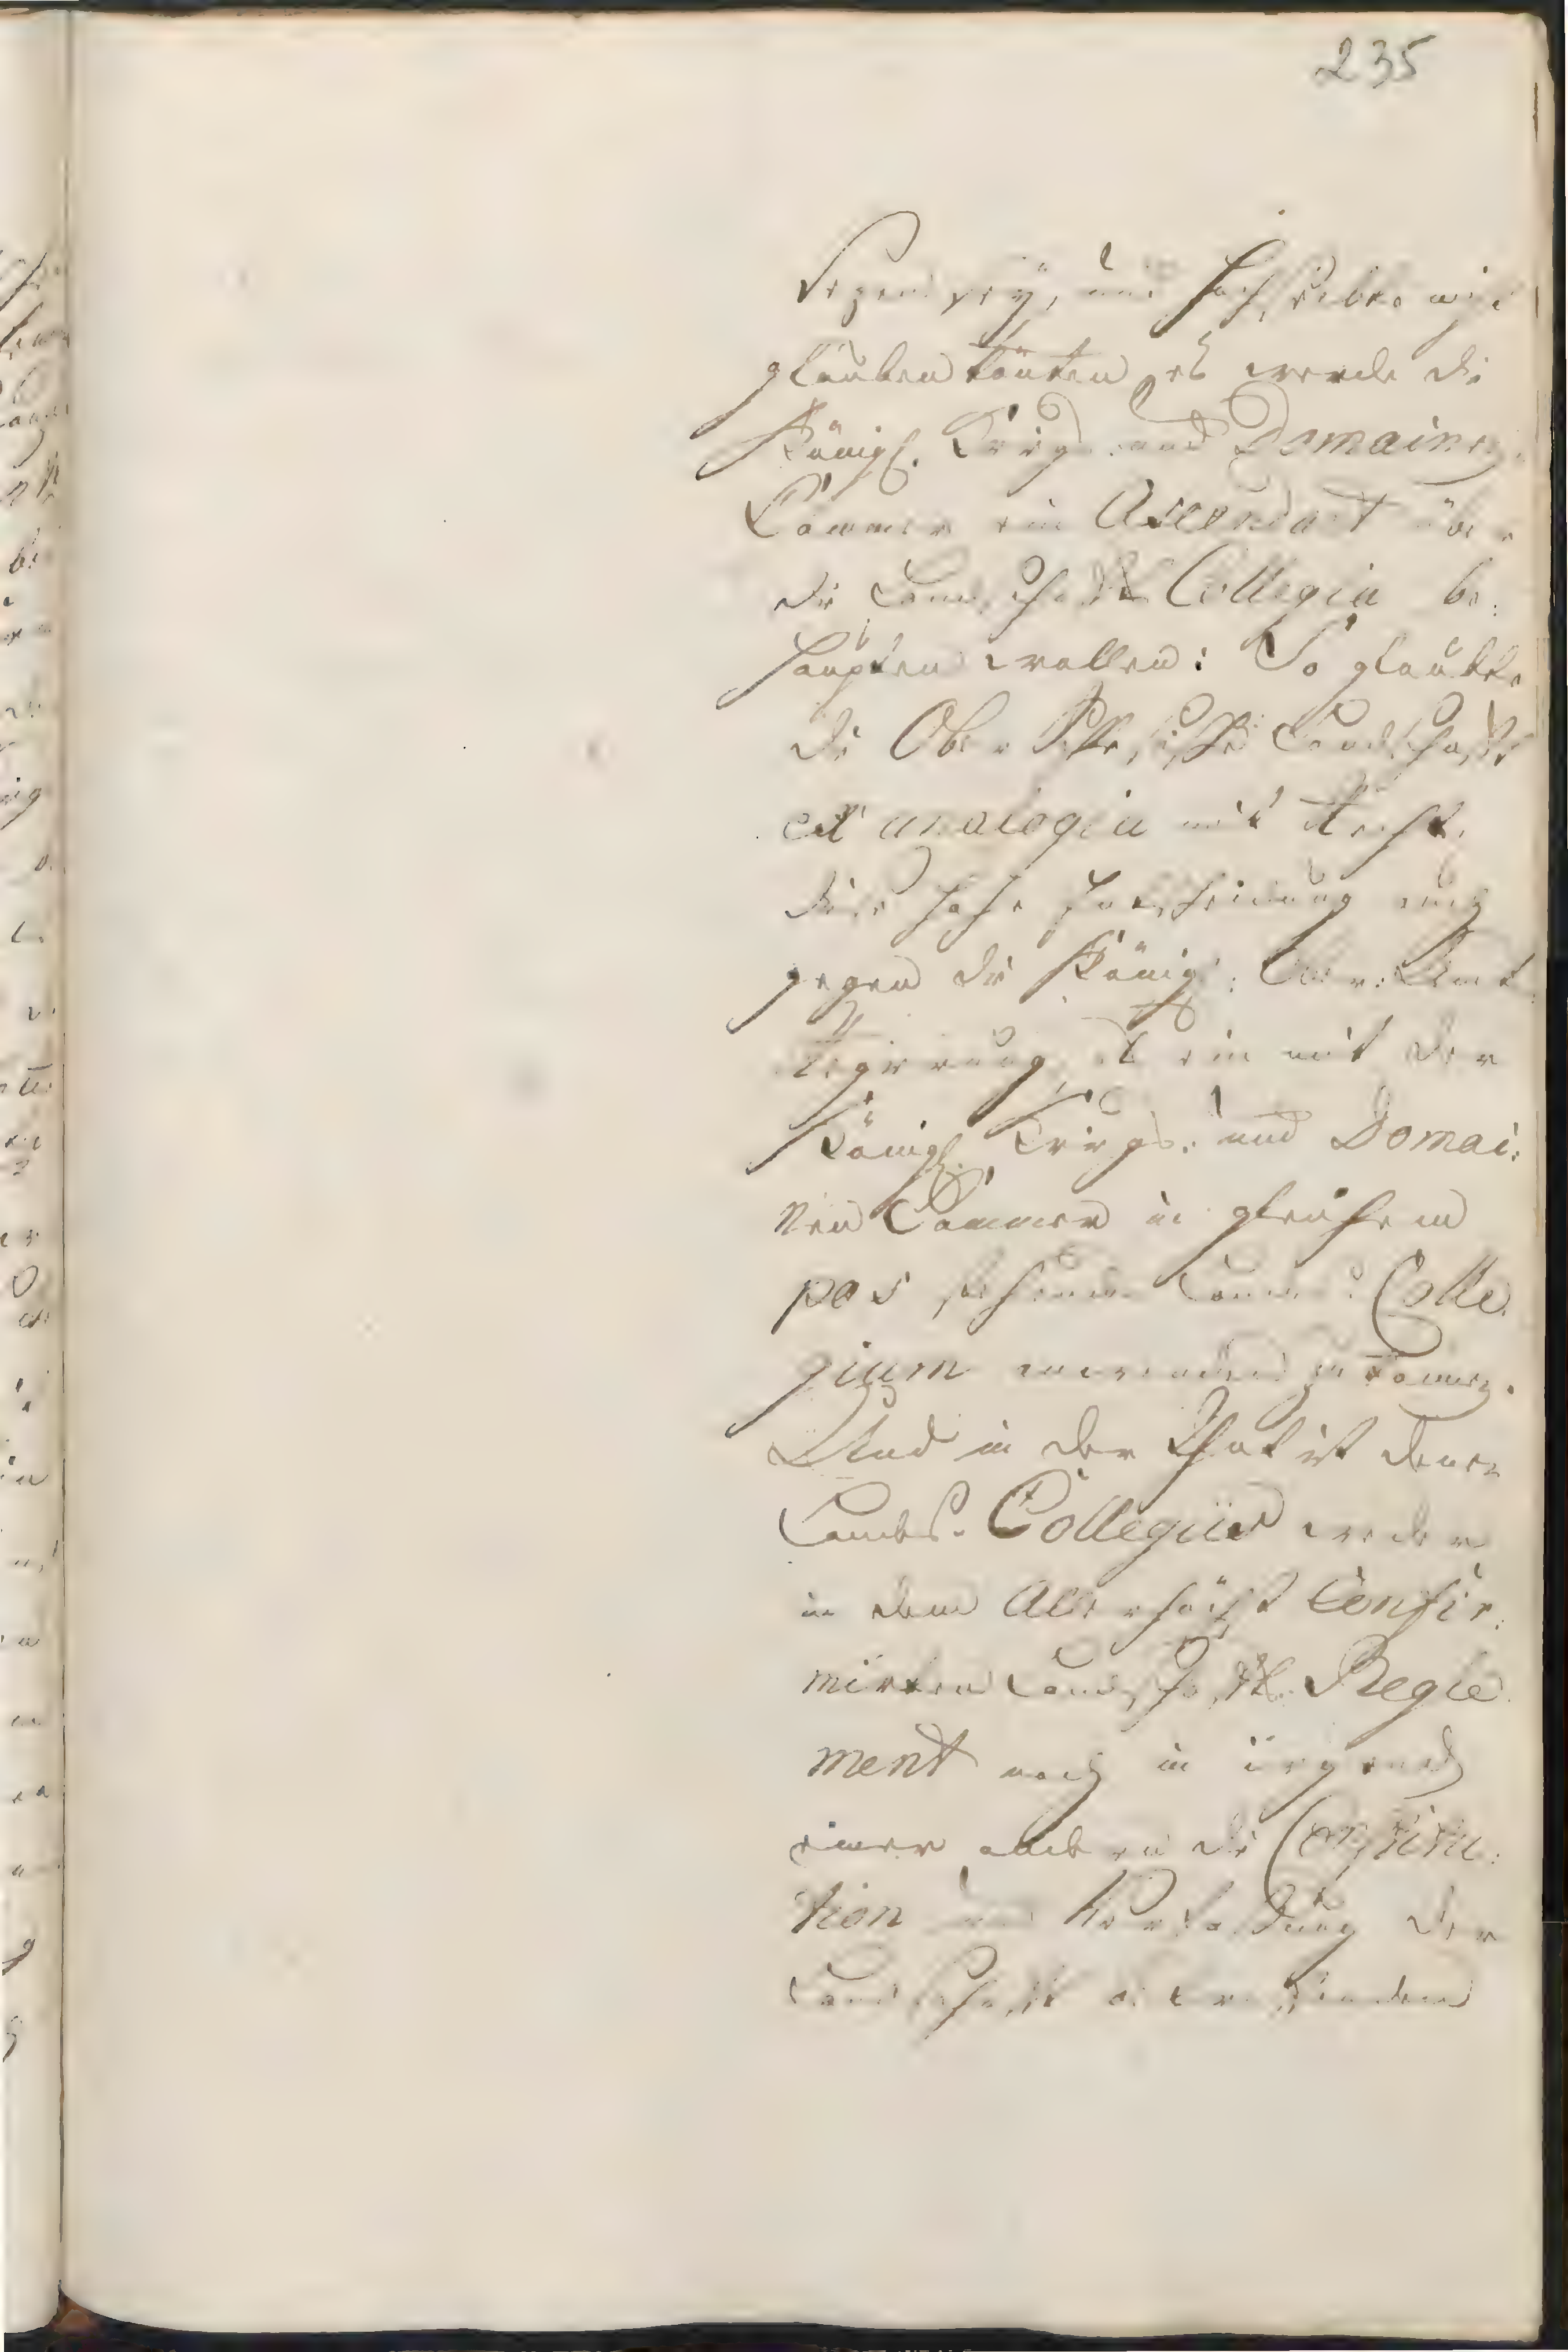 235
und Hochdieselbe nicht
glauben könten, es werde die
Königl. Krieges und Domainen
Cammer ein Ascendant über
die Landschafftl. Collegia be:
haupten wollen: So glaubte
die Ober Schlesische Landschafft
ex analogia mit Recht,
diese hohe Entscheidung auch
gegen die Königl: Ober-Amts
Regierung, als ein mit der
Königl. Krieges- und Domai:
nen Cammer in gleichem
pas stehendes Landes Colle
gium anwenden zu können.
Und in der That ist denen
Landes-Collegiis weder
in dem Allerhöchst Confir:
mirten Landschafftl. Regle
ment noch in irgend
einer andern die Constitu:
tion und Verfassung der
Landschafft betreffenden